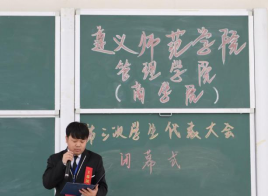 遵义师范学院
管理学院
（商学院）
第三次学生代表大会
闭幕式